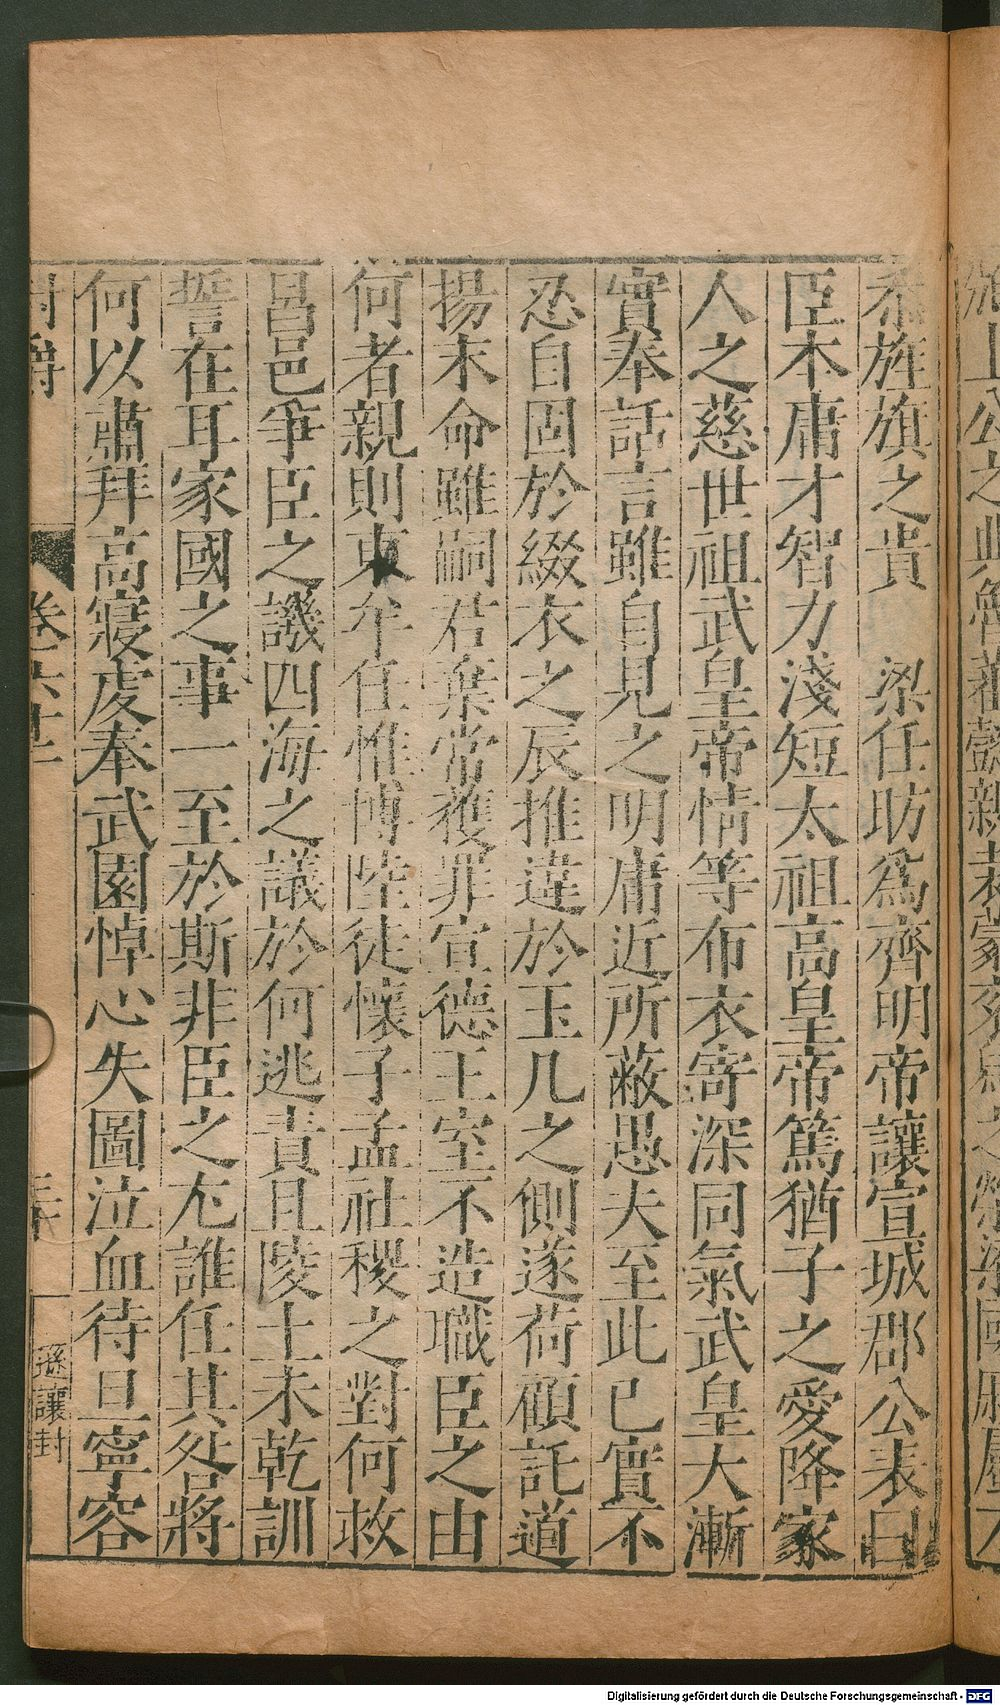 忝旌旗之貴　梁任昉爲齊明帝讓宣城郡公表曰
臣本庸才智力淺短太祖高皇帝篤猶子之愛降家
人之慈世祖武皇帝情等布衣寄深同氣武皇大漸
實奉話言雖自見之明庸近所蔽愚夫至此已實不
忍自固於綴衣之辰推違於玉几之側遂荷顧託道
揚末命雖嗣君棄常獲罪宣德王室不造職臣之由
何者親則東牟任惟博陸徒懷子孟社稷之對何救
昌邑爭臣之譏四海之議於何逃責且陵土未乾訓
誓在耳家國之事一至於斯非臣之尤誰任其咎將
何以肅拜高寢虔奉武園悼心失圖泣血待旦寧容
封爵
卷六十
遜讓封
Digitalisierung gefördert durch die Deutsche Forschungsgemeinschaft - DFG